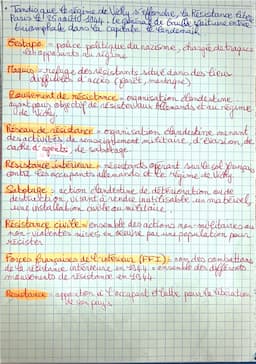 • Tandis que le régime de Vichy s'effondre, la Résistance libère
Paris le 25 août 1944. Le général de Gaulle fait une entrée
triomphale dans la capitale le lendemain
Gestapo = police politique du nazisme, chargée de traquer
les opposants au régime
Maquis = refuge des résistants situé dans des lieux
difficiles d'accès (forêt, montagne)
Mouvement de résistance = organisation clandestine
ayant pour objectif de résister aux Allemands et au régime
de Vichy.
Réseau de résistance = organisation clandestine menant
des activités de renseignement militaire, d'évasion, de
, de sabotage.
Résistance intérieure = résistants opérant sur le sol français
contre les occupants allemands et le régime de Vichy.
Sabotage = action clandestine de détérioration ou de
destruction, visant à rendre inutilisable un matériel,
une installation civile ou militaire.
Résistance civile = ensemble des actions non-militaires ou
non-violentes mises en œuvre par une population pour
résister
Forces françaises de l'intérieur (FFI) = nom des combattants
de la résistance intérieure en 1944 = ensemble des différents
mouvements de résistance en 1944.
Résistance = opposition à l'occupant et lutte pour la libération
de son pays.